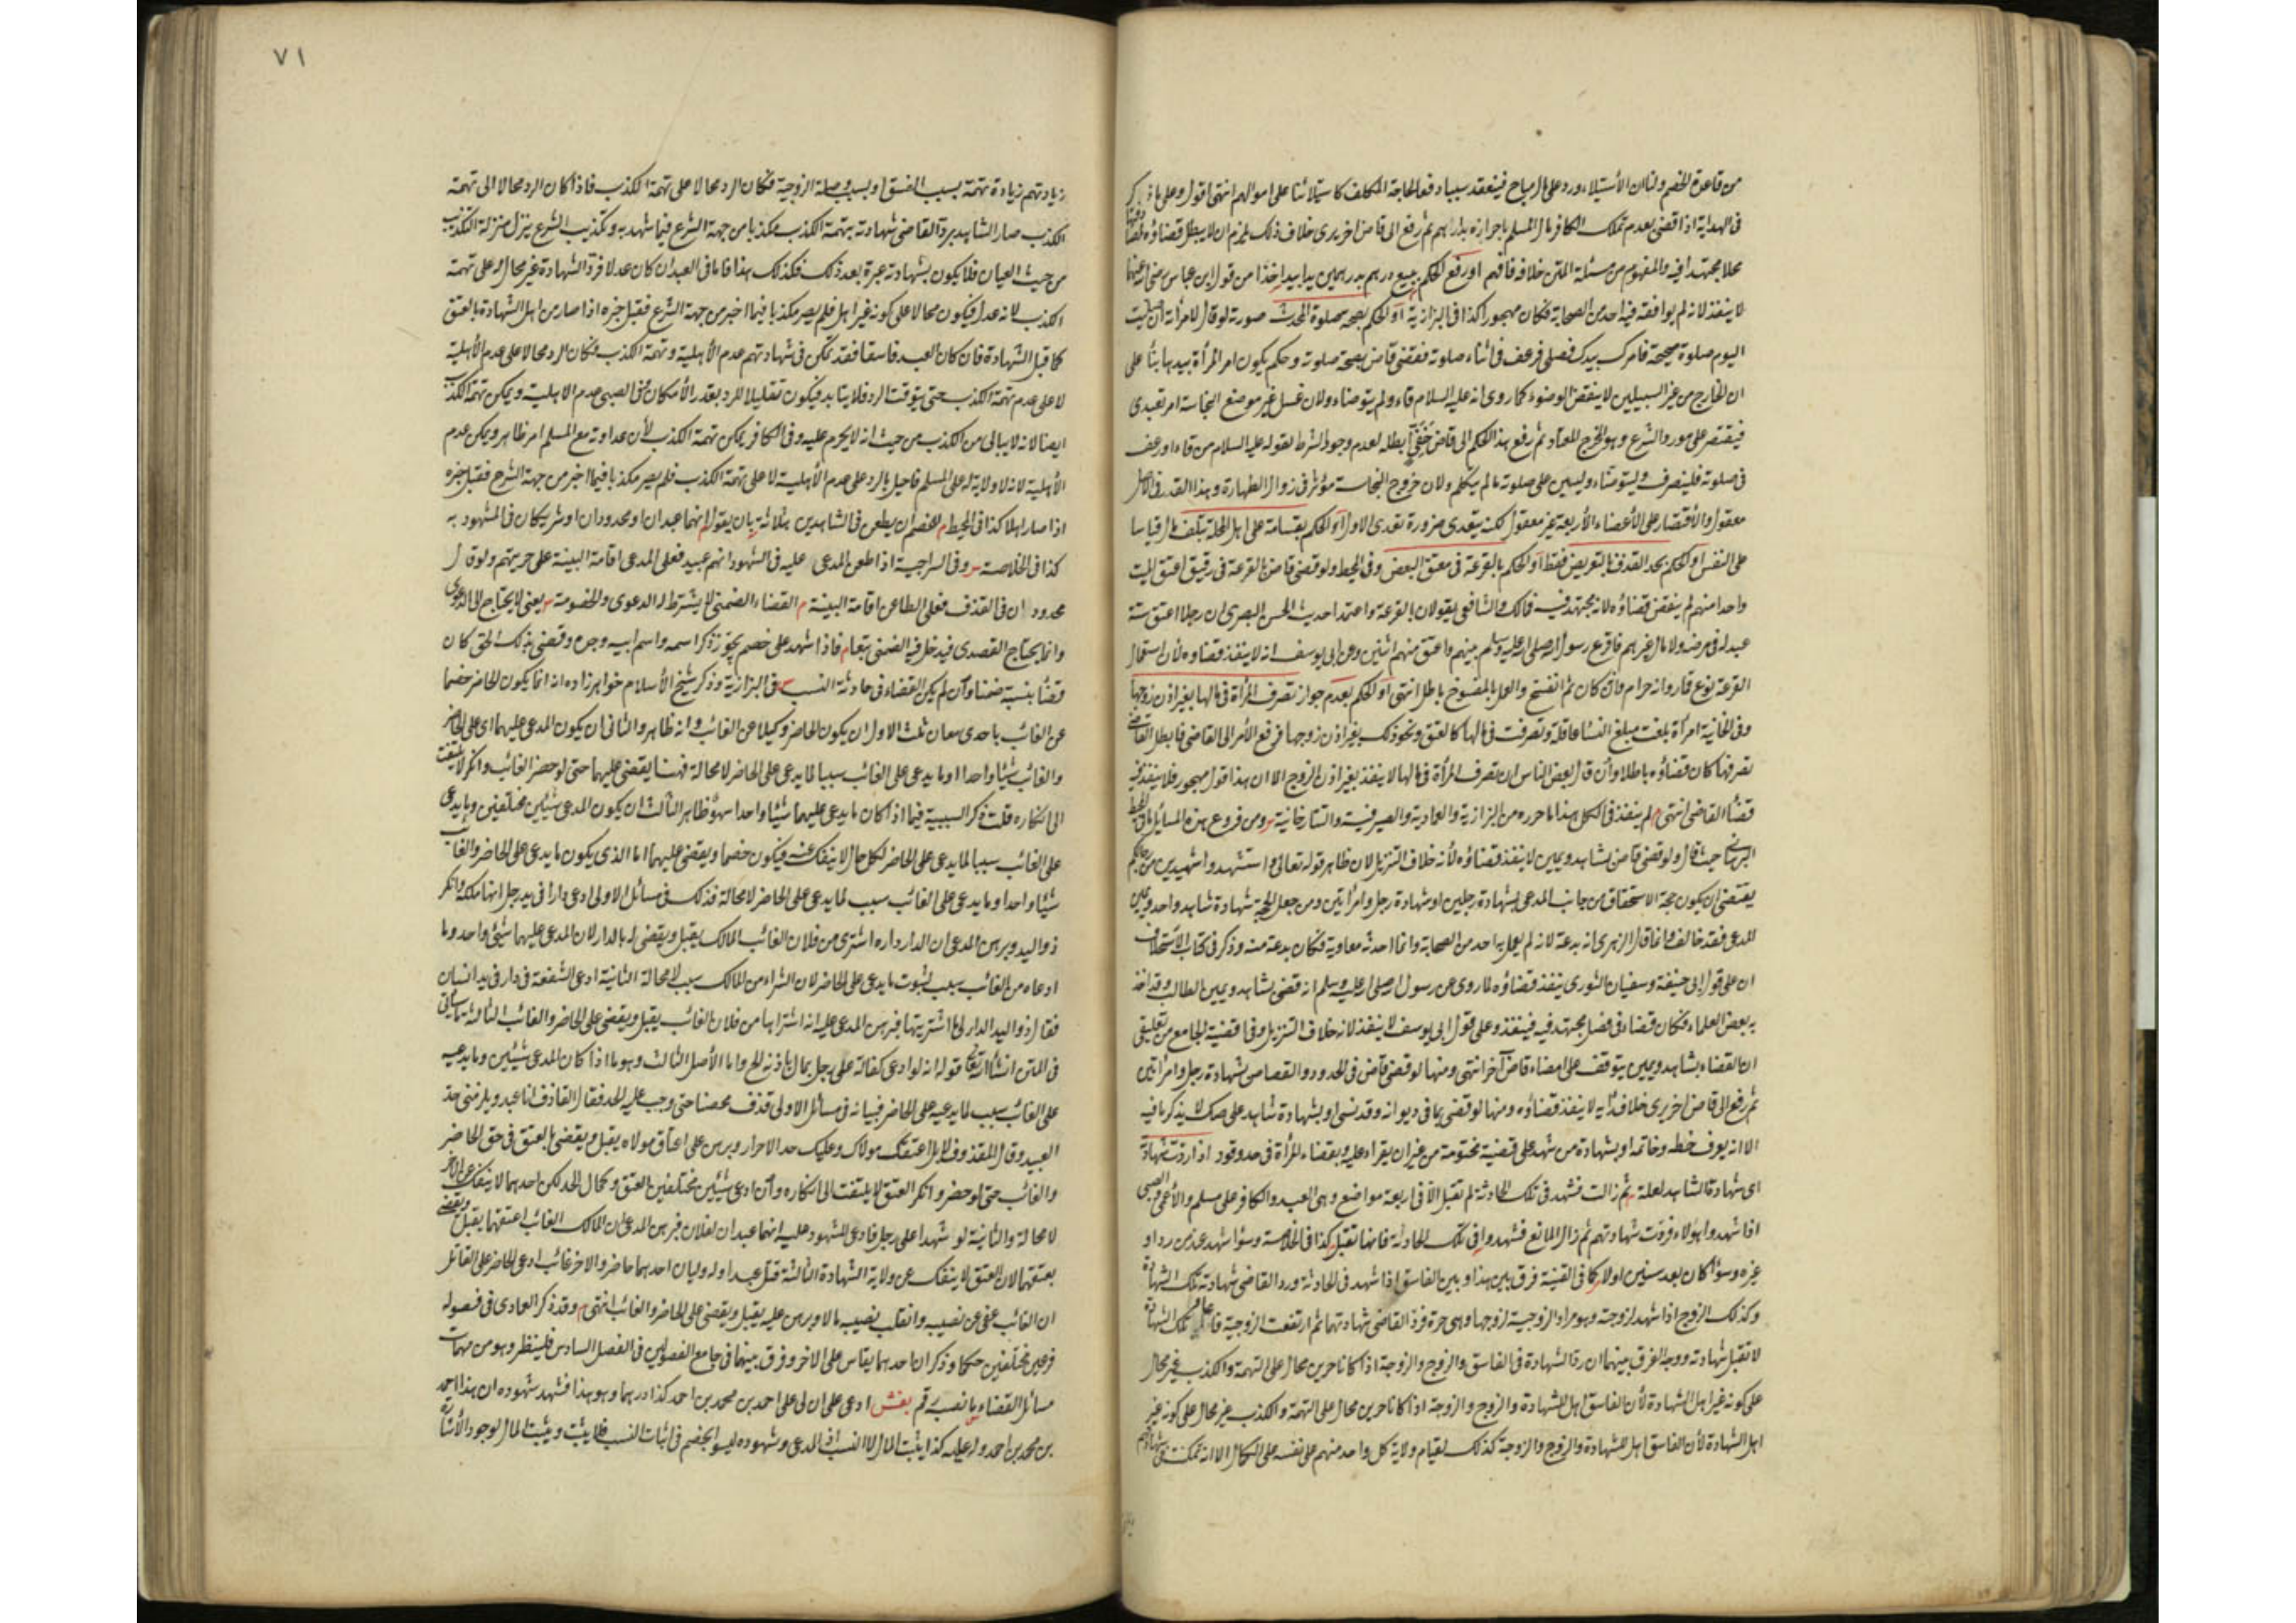 من قاعدة الخصم ولنا ان الاستيلاء ورد على مال مباح فينعقد سببا دفعا لحاجة المكلف كاستيلائنا على اموالهم انتهى اقول وعلى ما ذكر
فى الهداية اذا قضى بعدم تملك الكافر مال المسلم باحرازه بدارهم ثم رفع الى قاض اخر يرى خلاف ذلك يلزم ان لا يبطل قضاؤه
محلا مجتهدا فيه والمفهوم من مسئلة المتن خلافه فافهم او رفع لحكم ببيع درهم بدرهمين يدا بيد اخذا من قول ابن عباس رضى الله عنهما
لا ينفذ لانه لم يوافقه فيه احد من الصحابة فكان مهجورا كذا فى البزازية او لحكم بصحة صلوة المحدث صورته لو قال لامرأته ان صليت
اليوم صلوة صحيحة فامرك بيدك فصلى فرعف فى اثناء صلوته فقضى قاض بصحة صلوته وحكم بكون امر المرأة بيدها بناء على
ان الخارج من غير السبيلين لا ينقض الوضوء كما روى انه عليه السلام قاء ولم يتوضاء ولان غسل غير موضع النجاسة امر تعبدى
فيقتصر على مورد الشرع وهو المخرج المعتاد ثم رفع هذا الحكم الى قاض حنفى ابطله لعدم وجود الشرط لقوله عليه السلام من قاء او رعف
فى صلوته فلينصرف وليتوضاء وليبن على صلوته ما لم يتكلم ولان خروج النجاسة مؤثر فى زوال الطهارة وهذا القدر فى الاصل
معقول والاقتصار على الاعضاء الاربعة غير معقول لكنه يتعدى ضرورة تعدى الاول او لحكم بقسامة على اهل المحلة بتلف مال قياسا
على النفس او لحكم بحد القذف بالتعريض فقط او لحكم بالقرعة فى معتق البعض وفى المحيط ولو قضى قاض بالقرعة فى رقيق اعتق الميت
واحدا منهم لم ينقض قضاؤه لانه مجتهد فيه فمالك والشافعى يقولان بالقرعة واعتمدا حديث الحسن البصرى ان رجلا اعتق ستة
عبيد له فى مرضه ولا مال غيرهم فاقرع رسول الله صلى الله عليه وسلم بينهم واعتق منهم اثنين وعن ابى يوسف انه لا ينفذ قضاوه لان استعمال
القرعة نوع قمار وانه حرام وان كان ثم انفسخ والعمل بالمنسوخ باطل انتهى او لحكم بعدم جواز تصرف المرأة فى مالها بغير اذن زوجها
وفى الخانية امرأة بلغت مبلغ النساء عاقلة وتصرفت فى مالها كالعتق ونحو ذلك بغير اذن زوجها فرفع الامر الى القاضى فابطل القاضى
تصرفها كان قضاؤه باطلا وان قال بعض الناس ان تصرف المرأة فى مالها لا ينفذ بغير اذن الزوج الا ان هذا قول مهجور فلا ينفذ فيه
قضاء القاضى انتهى م لم ينفذ فى الكل هذا ما حرره من البزازية والعمادية والصيرفية والتتارخانية ومن فروع هذه المسائل ما فى المحيط
البرهانى حيث قال ولو قضى قاض بشاهد ويمين لا ينفذ قضاؤه لانه خلاف التنزيل لان ظاهر قوله تعالى واستشهدوا شهيدين من رجالكم
يقتضى ان يكون حجة الاستحقاق من جانب المدعى شهادة رجلين او شهادة رجل وامرأتين ومن جعل الحجة شهادة شاهد واحد ويمين
المدعى فقد خالف وانما قال الزهرى انه بدعة لانه لم يعمل به احد من الصحابة وانما احدثه معاوية فكان بدعة منه وذكر فى كتاب الاستحلاف
ان على قول ابى حنيفة وسفيان الثورى ينفذ قضاؤه لما روى عن رسول الله صلى الله عليه وسلم انه قضى بشاهد ويمين الطالب وقد اخذ
به بعض العلماء فكان قضاء فى فصل مجتهد فيه فينفذ وعلى قول ابى يوسف لا ينفذ لانه خلاف التنزيل وفى اقضية الجامع من تعليقى
ان القضاء بشاهد ويمين يتوقف على امضاء قاض آخر انتهى ومنها لو قضى قاض فى الحدود والقصاص بشهادة رجل وامرأتين
ثم رفع الى قاض اخر يرى خلاف رأيه لا ينفذ قضاؤه ومنها لو قضى بما فى ديوانه وقد نسى او بشهادة شاهد على صك لا يذكر ما فيه
الا انه يعرف خطه وخاتمه او بشهادة من شهد على قضية مختومة من غير ان يقراء عليه وبقضاء المرأة فى حد وقود اذا ردت شهادة
اى شهادة الشاهد لعلة ثم زالت فشهد فى تلك الحادثة لم تقبل الا فى اربعة مواضع وهى العبد والكافر على مسلم والاعمى والصبى
اذا شهد هؤلاء فردت شهادتهم ثم زال المانع فشهدوا فى تلك الحادثة فانها تقبل كذا فى الخلاصة وسواء شهد عند من رد او
غيره وسواء كان بعد سنين اولا كما فى القنية فرق بين هذا وبين الفاسق اذا شهد فى الحادثة ورد القاضى شهادته تلك الشهادة
وكذلك الزوج اذا شهد لزوجته وهو مراد الزوجية لزوجها وهى حرة فرد القاضى شهادتهما ثم ارتفعت الزوجية فاعاد تلك الشهادة
لا تقبل شهادته ووجه الفرق بينهما ان رد الشهادة فى الفاسق والزوج والزوجة اذا كانا حرين محال على التهمة والكذب غير محال
على كونه غير اهل الشهادة لان الفاسق اهل للشهادة والزوج والزوجة اذا كانا حرين محال على التهمة والكذب غير محال على كونه غير
اهل الشهادة لان الفاسق اهل للشهادة والزوج والزوجة كذلك لقيام ولاية كل واحد منهم على نفسه على الكمال الا انه تمكنت فى شهادتهم
٧١
زيادتهم زيادة تهمة بسبب الفسق او بسبب وصلة الزوجية فكان الرد محالا على تهمة الكذب فاذا كان الرد محالا الى تهمة
الكذب صار الشاهد برد القاضى شهادته بتهمة الكذب مكذبا من جهة الشرع فيما شهد به وتكذيب الشرع ينزل منزلة التكذيب
من حيث العيان فلا يكون بشهادته عبرة بعد ذلك فكذلك هذا فاما فى العبد ان كان عدلا فرد الشهادة غير محال له على تهمة
الكذب لانه عدل فيكون محالا على كونه غير اهل فلم يصر مكذبا فيما اخبر من جهة الشرع فقبل خبره اذا صار من اهل الشهادة بالعتق
كما قبل الشهادة فان كان العبد فاسقا فقد تمكن فى شهادتهم عدم الاهلية وتهمة الكذب فكان الرد محالا على عدم الاهلية
لا على عدم تهمة الكذب حتى يتوقت الرد فلا يتابد فيكون تقليلا للرد بقدر الامكان ففى الصبى عدم الاهلية ويمكن تهمة الكذب
ايضا لانه لا يبالى من الكذب من حيث انه لا يحرم عليه وفى الكافر يمكن تهمة الكذب لان عداوته مع المسلم امر ظاهر ويمكن عدم
الاهلية لانه لا ولاية له على المسلم فاحيل بالرد على عدم الاهلية لا على تهمة الكذب فلم يصر مكذبا فيما اخبر من جهة الشرع فقبل خبره
اذا صار اهلا كذا فى المحيط م للخصم ان يطعن فى الشاهدين بثلاثة بان يقول انهما عبدان او محدودان او شريكان فى المشهود به
كذا فى الخلاصة وفى السراجية اذا طعن المدعى عليه فى الشهود انهم عبيد فعلى المدعى اقامة البينة على حريتهم ولو قال
محدودان فى القذف فعلى الطاعن اقامة البينة م القضاء الضمنى لا يشترط له الدعوى والخصومة يعنى لا يحتاج الى الدعوى
وانما يحتاج القصدى فيدخل فيه الضمنى تبعا م فاذا شهد على خصم بحق وذكر اسمه واسم ابيه وجده وقضى بذلك الحق كان
قضاء بنسبه ضمنا وان لم يكن القضاء فى حادثة النسب فى البزازية وذكر شيخ الاسلام خواهرزاده انه انما يكون الحاضر خصما
عن الغائب باحدى معان ثلث الاول ان يكون الحاضر وكيلا عن الغائب وانه ظاهر والثانى ان يكون المدعى عليهما اى على الحاضر
والغائب شيئا واحدا او ما يدعى على الغائب سببا لما يدعى على الحاضر لا محالة فهنا يقضى عليهما حتى لو حضر الغائب وانكر لا يلتفت
الى انكاره قلت ذكر السببية فيما اذا كان ما يدعى عليهما شيئا واحدا سهو ظاهر الثالث ان يكون المدعى شيئين مختلفين وما يدعى
على الغائب سببا لما يدعى على الحاضر لكل حال لا ينفك عنه فيكون خصما ويقضى عليهما اما الذى يكون ما يدعى على الحاضر والغائب
شيئا واحدا وما يدعى على الغائب سبب لما يدعى على الحاضر لا محالة فذلك فى مسائل الاولى ادعى دارا فى يد رجل انها ملكه وانكر
ذو اليد وبرهن المدعى ان الدار داره اشترى من فلان الغائب المالك يقبل ويقضى له بالدار لان المدعى عليهما شيئ واحد وما
ادعاه من الغائب سبب لثبوت ما يدعى على الحاضر لان الشراء من المالك سبب لا محالة الثانية ادعى الشفعة فى دار فى يد انسان
فقال ذو اليد الدار لى ما اشتريتها فبرهن المدعى عليه انه اشتراها من فلان الغائب يقبل ويقضى على الحاضر والغائب الثالثة ما سيأتى
فى المتن ان شاء الله تعالى قوله انه لو ادعى كفالة على رجل بمال باذنه الخ واما الاصل الثالث وهو ما اذا كان المدعى شيئين وما يدعيه
على الغائب سبب لما يدعيه على الحاضر فبيانه فى مسائل الاولى قذف محصنا حتى وجب عليه الحد فقال القاذف انا عبد ويلزمنى حد
العبيد وقال المقذوف لا بل اعتقك مولاك وعليك حد الاحرار وبرهن على اعتاق مولاه يقبل ويقضى بالعتق فى حق الحاضر
والغائب حتى لو حضر وانكر العتق لا يلتفت الى انكاره وان ادعى شيئين مختلفين العتق وكمال الحد لكن احدهما لا ينفك عن الاخر
لا محالة والثانية لو شهدا على رجل فادعى المشهود عليه انهما عبدان لفلان فبرهن المدعى ان المالك الغائب اعتقهما يقبل ويقضى
بعتقهما لان العتق لا ينفك عن ولاية الشهادة الثالثة قتل عبدا وله وليان احدهما حاضر والاخر غائب ادعى الحاضر على القاتل
ان الغائب عفى عن نصيبه وانقلب نصيبه مالا وبرهن عليه يقبل ويقضى على الحاضر والغائب انتهى وقد ذكر العمادى فى فصوله
فرعين مختلفين حكما وذكر ان احدهما يقاس على الاخر وفرق بينهما فى جامع الفصولين فى الفصل السادس فلينظر وهو من مهمات
مسائل القضاء ادعى على ان لى على احمد بن محمد بن احمد كذا درهما وهو هذا فشهد شهوده ان هذا احمد
بن محمد بن احمد وله عليه كذا يثبت المال لا النسب اذ المدعى وشهوده ليسوا بخصم فى اثبات النسب فلا يثبت ويثبت المال لوجود الاشارة